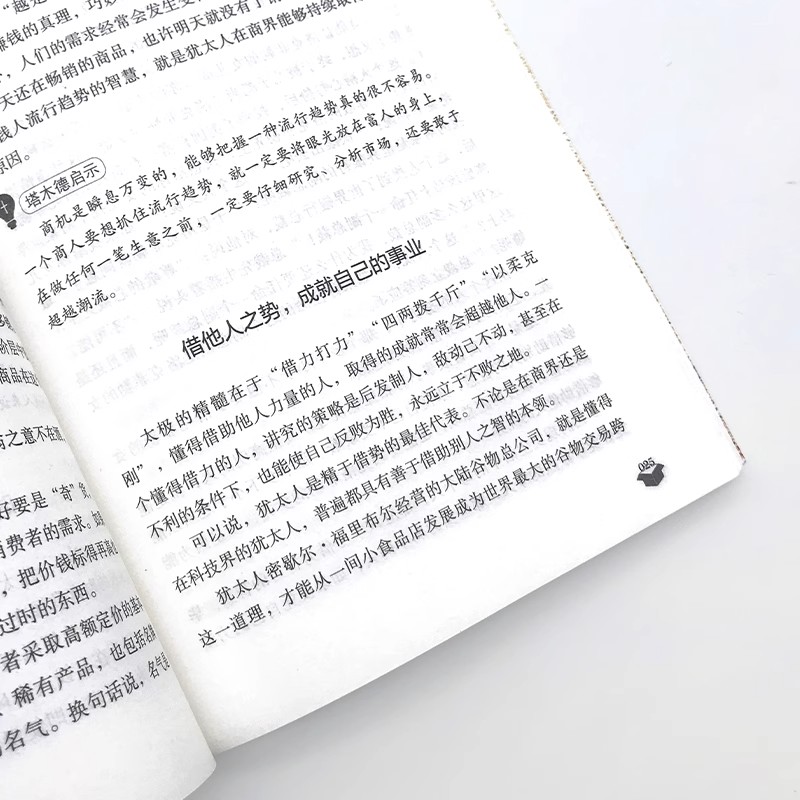 阶层
商品在这
之意不在酒
好要是“奇”货
消费者的需求。如
，把价钱标得再高
过时的东西。
者采取高额定价的基本
、稀有产品，也包括名牌
的名气。换句话说，名气
“越是
赚钱的真理，巧妙
，人们的需求经常会发生变
天还在畅销的商品，也许明天就没有了
钱人流行趋势的智慧，就是犹太人在商界能够持续取得
原因。
塔木德启示
商机是瞬息万变的，能够把握一种流行趋势真的很不容易。
一个商人要想抓住流行趋势，就一定要将眼光放在富人的身上，
在做任何一笔生意之前，一定要仔细研究、分析市场，还要敢于
超越潮流。
借他人之势，成就自己的事业
太极的精髓在于“借力打力”“四两拨千斤”“以柔克
刚”，懂得借助他人力量的人，取得的成就常常会超越他人。一
个懂得借力的人，讲究的策略是后发制人，敌动己不动，甚至在
不利的条件下，也能使自己反败为胜，永远立于不败之地。
可以说，犹太人是精于借势的最佳代表。不论是在商界还是
在科技界的犹太人，普遍都具有善于借助别人之智的本领。
犹太人密歇尔·福里布尔经营的大陆谷物总公司，就是懂得
这一道理，才能从一间小食品店发展成为世界最大的谷物交易跨
025